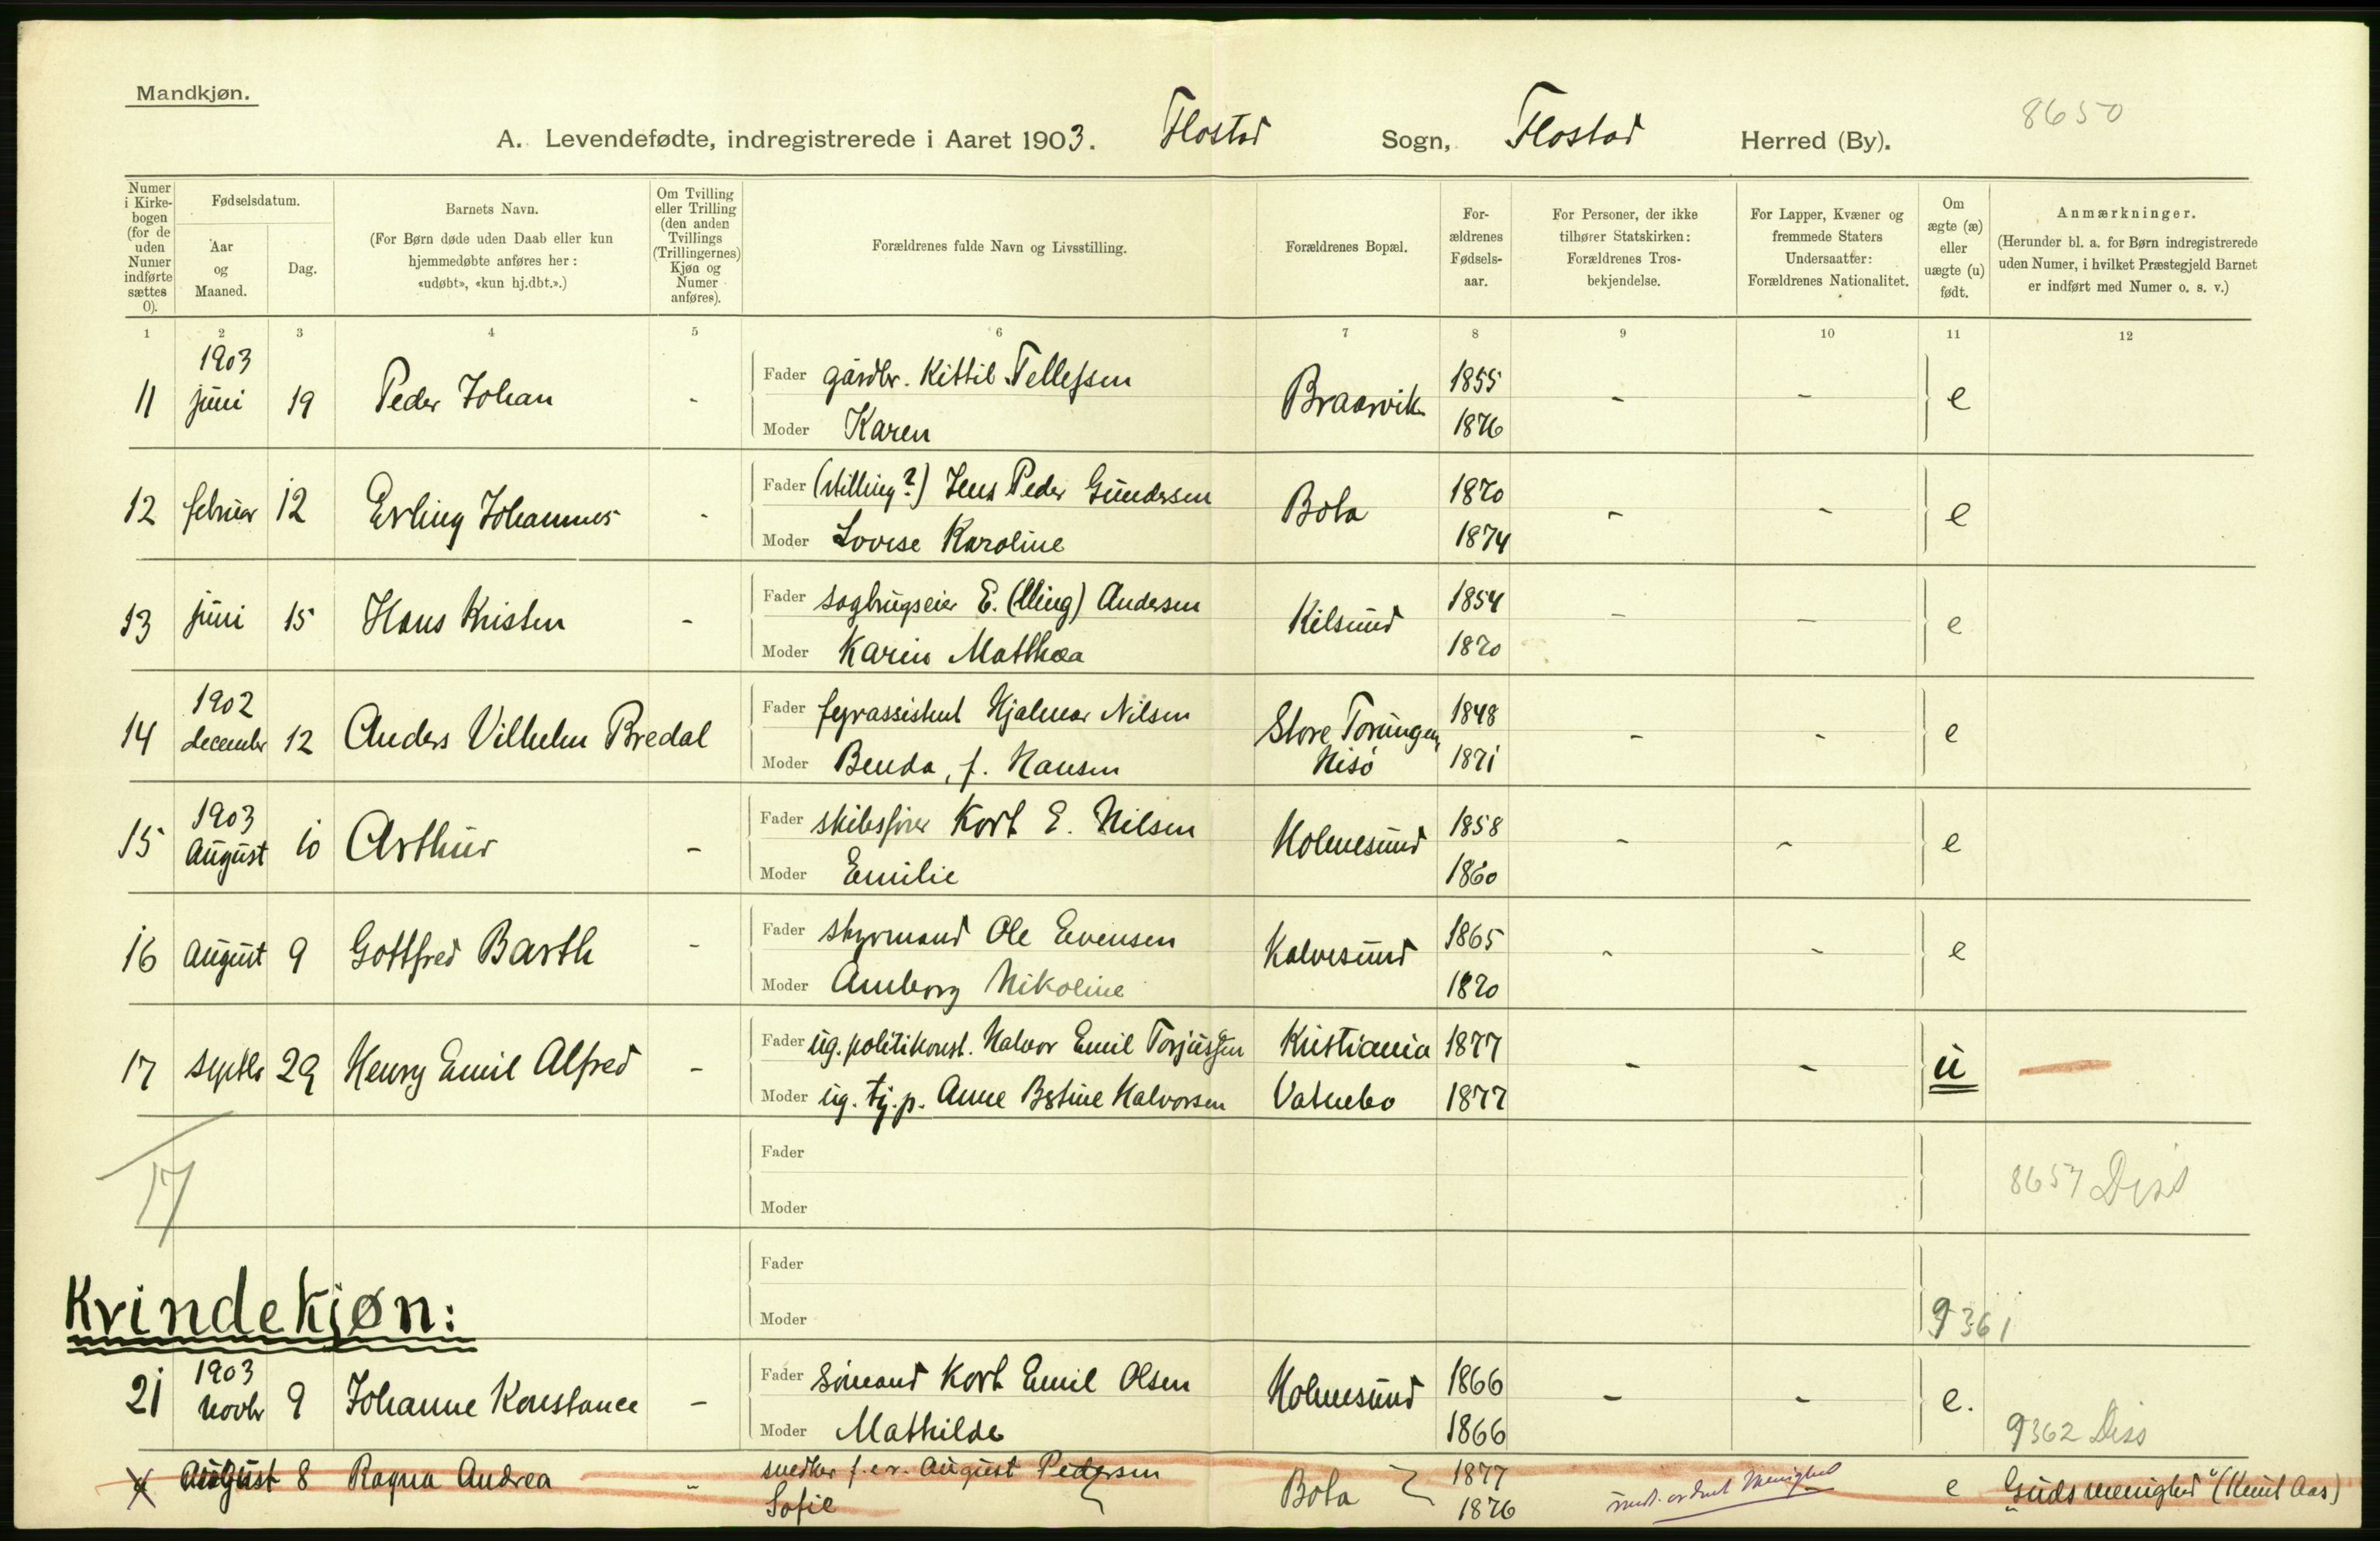 Mandkjøn.
8650
A. Levendefødte, indregistrerede i Aaret 1903. Flostad Sogn, Flostad Herred (By).
Numer i Kirkebogen (for de uden Numer indførte sættes 0).
Fødselsdatum.
Aar og Maaned.
Dag.
Barnets Navn.
(For Børn døde uden Daab eller kun hjemmedøbte anføres her: «udøbt», «kun hj.dbt.».)
Om Tvilling eller Trilling (den anden Tvillings (Trillingernes) Kjøn og Numer anføres).
Forældrenes fulde Navn og Livsstilling.
Forældrenes Bopæl.
Forældrenes Fødselsaar.
For Personer, der ikke tilhører Statskirken: Forældrenes Trosbekjendelse.
For Lapper, Kvæner og fremmede Staters Undersaatter: Forældrenes Nationalitet.
Om ægte (æ) eller uægte (u) født.
Anmærkninger.
(Herunder bl. a. for Børn indregistrerede uden Numer, i hvilket Præstegjeld Barnet er indført med Numer o. s. v.)
1 2 3 4 5 6 7 8 9 10 11 12
1903
11 juni 19 Peder Johan - Fader gårdbr. Kittil Tellefsen Braarvik 1855 - - e
Moder Karen 1876
12 februar 12 Erling Johannes - Fader (stilling?) Jens Peder Gundersen Bota 1870 - - e
Moder Lovise Karoline 1874
13 juni 15 Hans Kristen - Fader sagbrugseier E. (Elling) Andersen Kilsund 1854 - - e
Moder Karin Mathea 1870
1902
14 december 12 Anders Vilhelm Bredal Fader fyrassistent Hjalmar Nilsen Store Torungen 1848 - - e
Moder Benda, f. Hansen Hisö 1871
1903
15 August 10 Arthur - Fader skibsfører Kort E. Nilsen Holmesund 1858 - - e
Moder Emilie 1860
16 August 9 Gottfred Barth - Fader styrmand Ole Evensen Kalvesund 1865 - - e
Moder Amborg Nikoline 1870
17 septbr 29 Henry Emil Alfred - Fader ug. politikonst. Halvor Emil Torjussen Kristiania 1877 - - u
Moder ug. tj.p. Anne Bertine Halvorsen Vatnebo 1877
17
Fader
Moder
8657 Diss
Fader
Moder
9361
Kvindekjøn:
1903
21 novbr 9 Johanne Konstance - Fader sömand Kort Emil Olsen Holmesund 1866 - - e.
Moder Mathilde 1866
9362 Diss
August 8 Ragna Andrea - snedker f.e.r. August Pedersen Bota 1877 e „Guds menighed" (Knut Aas)
Sofie 1876